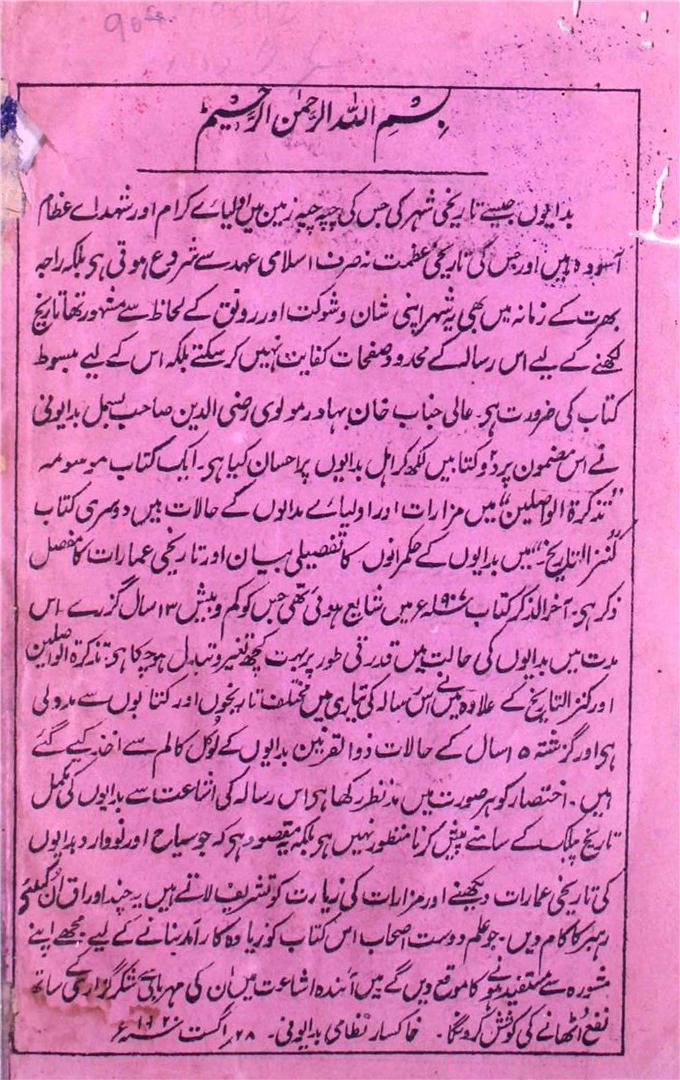 بسم اللہ الرحمٰن الرحیم
بدایوں جیسے تاریخی شہر کی جس کی چپہ چپہ زمین میں اولیاے کرام اور شہداے عظام
آسودہ ہیں اور جس کی تاریخی عظمت نہ صرف اسلامی عہد سے شروع ہوتی ہی بلکہ راجہ
بھرت کے زمانہ میں بھی یہ شہر اپنی شان و شوکت اور رونق کے لحاظ سے مشہور تھا تاریخ
لکھنے کے لیے اس رسالہ کے محدود صفحات کفایت نہیں کر سکتے بلکہ اس کے لیے مبسوط
کتاب کی ضرورت ہی۔ عالی جناب خان بہادر مولوی رضی الدین صاحب بسمل بدایونی
نے اس مضمون پر دو کتابیں لکھ کر اہل بدایوں پر احسان کیا ہی۔ ایک کتاب موسومہ
"تذکرۃ الواصلین" میں مزارات اور اولیاے بدایوں کے حالات ہیں دوسری کتاب
"کنز التاریخ" میں بدایوں کے حکمرانوں کا تفصیلی بیان اور تاریخی عمارات کا مفصل
ذکر ہی۔ آخر الذکر کتاب ۱۹۰۷ء میں شایع ہوئی تھی جس کو کم و بیش ۱۳ سال گزرے۔ اس
مدت میں بدایوں کی حالت میں قدرتی طور پر بہت کچھ تغیر و تبدل ہو چکا ہی۔ تذکرۃ الواصلین
اور کنز التاریخ کے علاوہ میں نے اس رسالہ کی تیاری میں مختلف تاریخوں اور کتابوں سے مدد لی
ہی اور گزشتہ ۱۵ سال کے حالات ذوالقرنین بدایوں کے لوکل کالم سے اخذ کیے گئے
ہیں۔ اختصار کو ہر صورت میں مدنظر رکھا ہی اس رسالہ کی اشاعت سے بدایوں کی مکمل
تاریخ پبلک کے سامنے پیش کرنا منظور نہیں ہی بلکہ یہ مقصود ہی کہ جو سیاح اور نووارد بدایوں
کی تاریخی عمارات دیکھنے اور مزارات کی زیارت کو تشریف لاتے ہیں یہ چند اوراق ان کیلئے
رہبر کا کام دیں۔ جو علم دوست اصحاب اس کتاب کو زیادہ کارآمد بنانے کے لیے مجھے اپنے
مشورہ سے مستفید ہونے کا موقع دیں گے میں آئندہ اشاعت میں ان کی مہربانی سے شکر گزاری کے ساتھ
نفع اٹھانے کی کوشش کرونگا۔ خاکسار نظامی بدایونی۔ ۲۸؍ اگست ۱۹۲۰ء